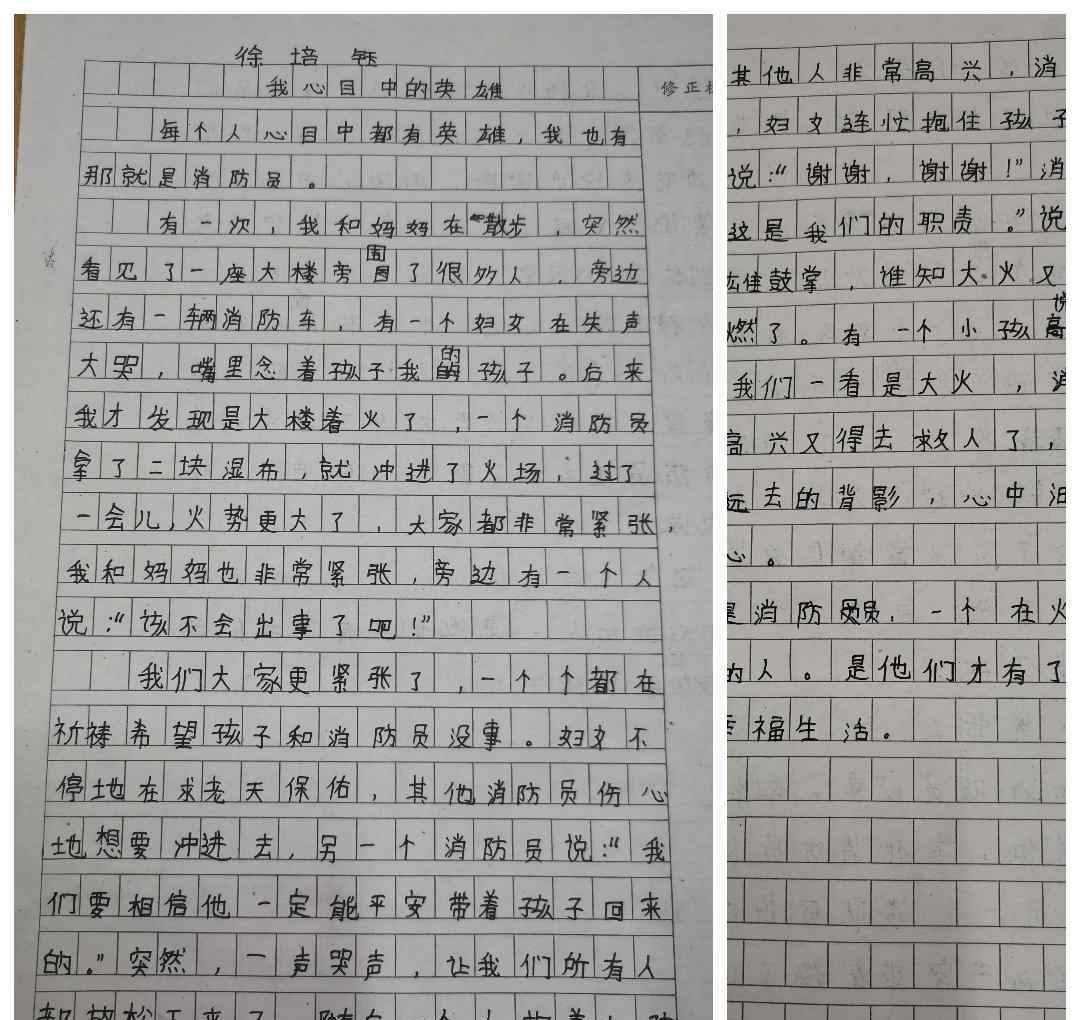 徐培钰
我心目中的英雄
修正
每个人心目中都有英雄，我也有
那就是消防员。
有一次，我和妈妈在散步，突然
看见了一座大楼旁围了很多人，旁边
还有一辆消防车，有一个妇女在失声
大哭，嘴里念着孩子我的孩子。后来
我才发现是大楼着火了，一个消防员
拿了二块湿布，就冲进了火场，过了
一会儿，火势更大了，大家都非常紧张，
我和妈妈也非常紧张，旁边有一个人
说："该不会出事了吧！"
我们大家更紧张了，一个个都在
祈祷希望孩子和消防员没事。妇女不
停地在求老天保佑，其他消防员伤心
地想要冲进去，另一个消防员说："我
们要相信他一定能平安带着孩子回来
的。"突然，一声哭声，让我们所有人
其他人非常高兴，消
，妇女连忙抱住孩子
说："谢谢，谢谢！"消
这是我们的职责。"说
鼓掌，谁知大火又
燃了。有一个小孩说
我们一看是大火，消
高兴又得去救人了，
远去的背影，心中
心。
是消防员，一个在火
的人。是他们才有了
幸福生活。